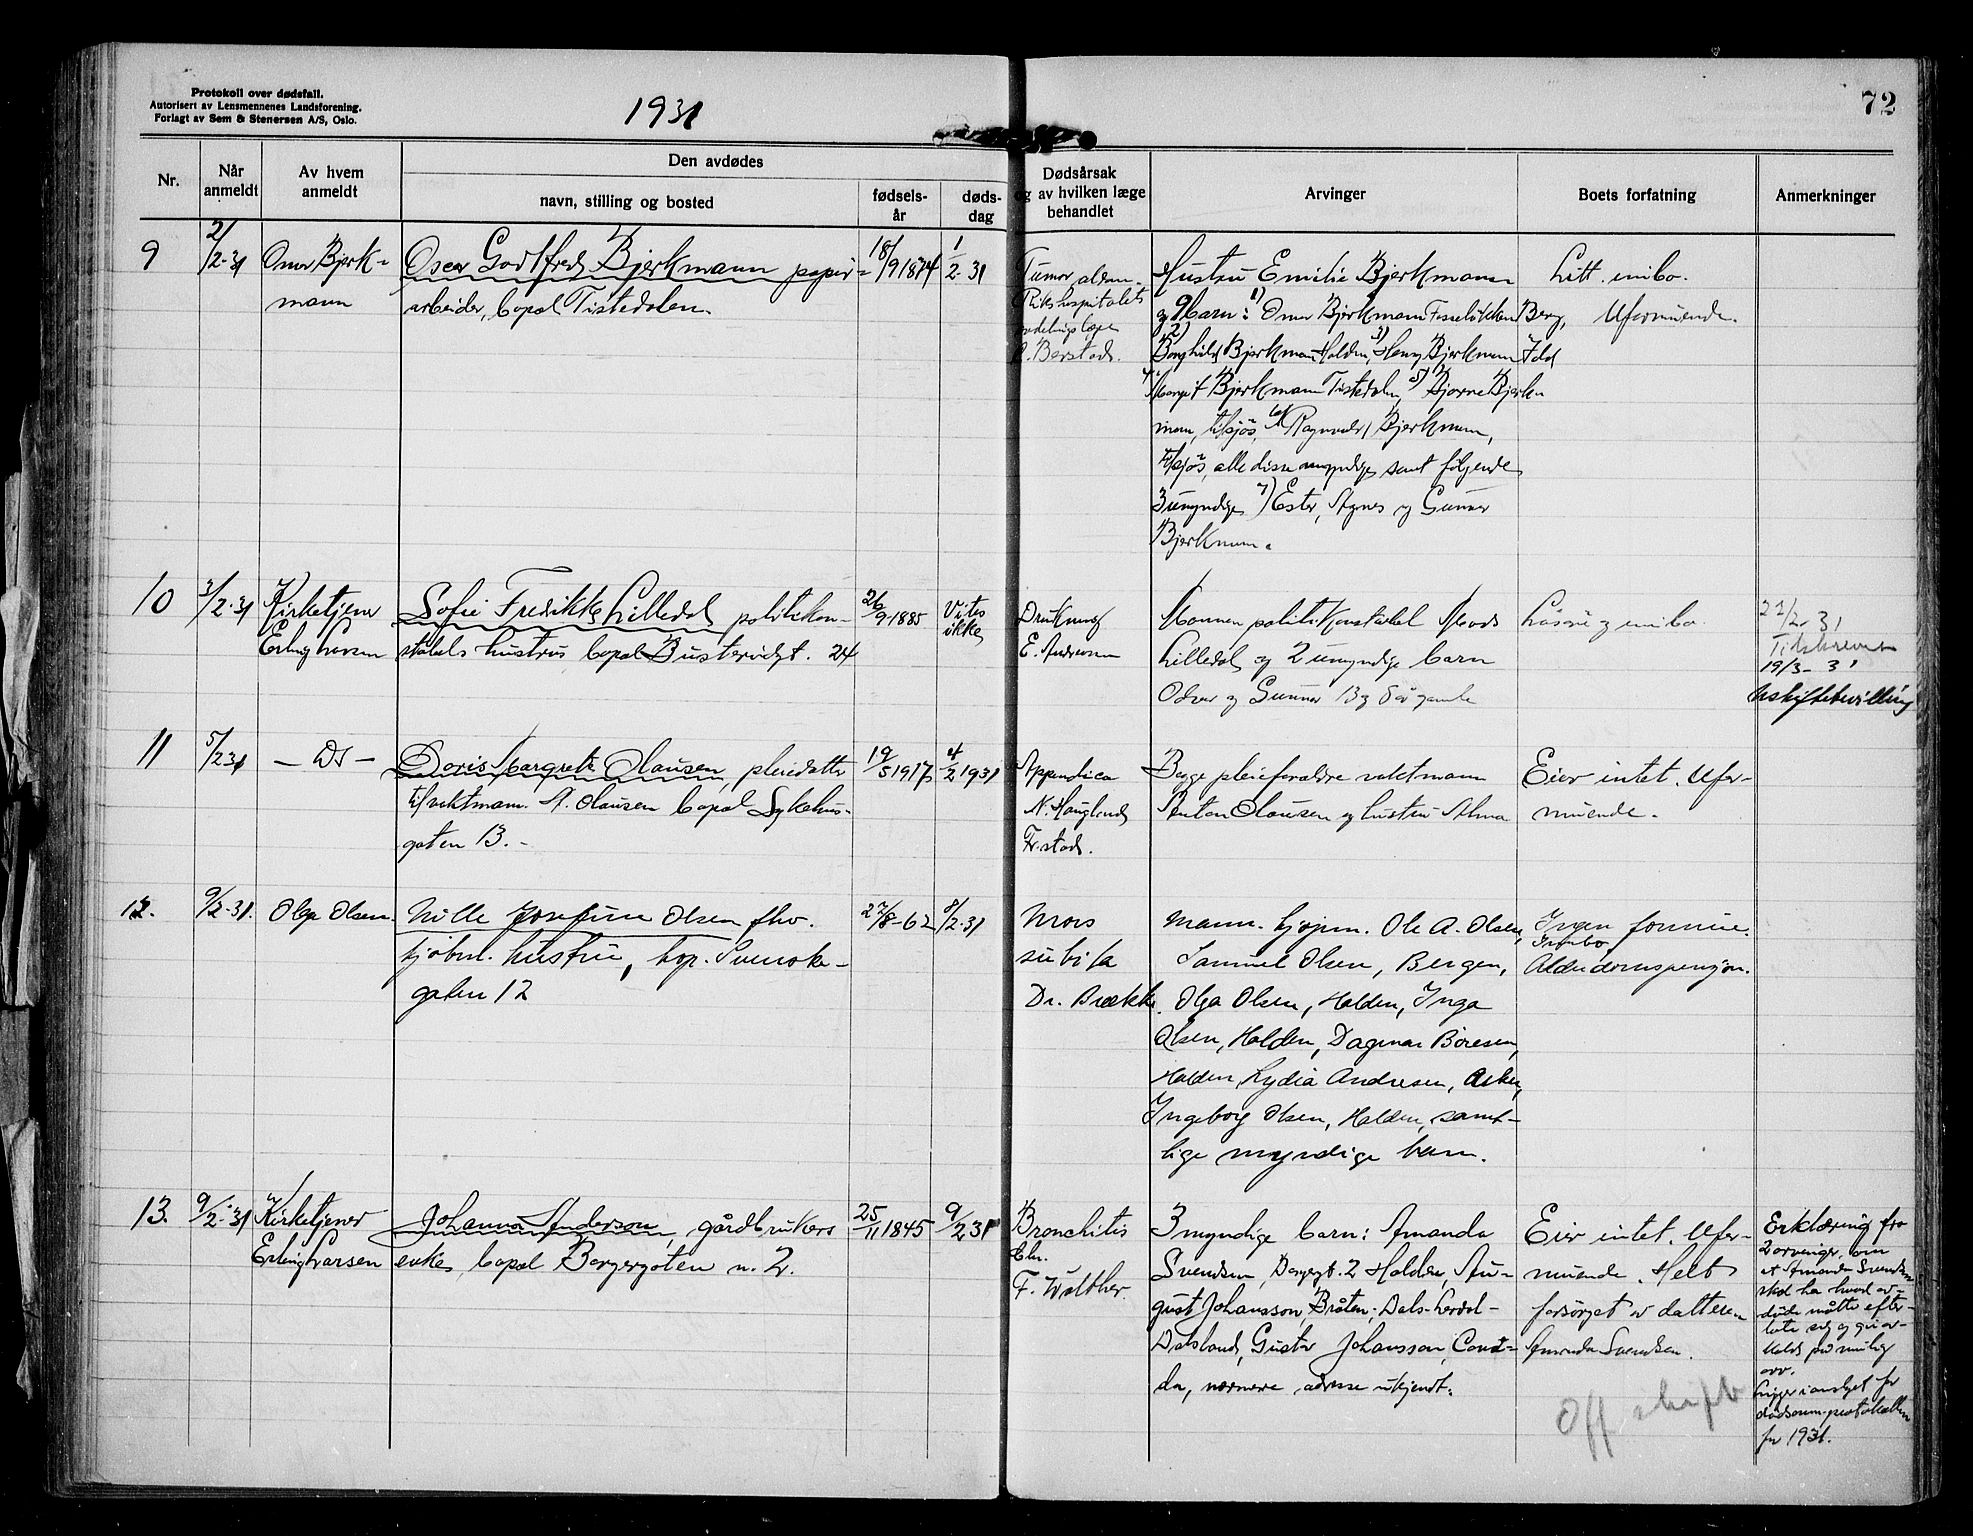 Protokoll over dødsfall.
Autorisert av Lensmennenes Landsforening.
Forlagt av Sem & Stenersen A/S, Oslo.
1931
72
Nr.
Når anmeldt
Av hvem anmeldt
Den avdødes
navn, stilling og bosted
fødsels-år
døds-dag
Dødsårsak
og av hvilken læge
behandlet
Arvinger
Boets forfatning
Anmerkninger
9
2/2-31
Omar Bjerk-
mann
Oscar Godtfred Bjerkmann papir-
arbeider, bopæl Tistedalen.
18/9 1874
1/2-31
Tumor
Rikshospitalets
avdelingslæge
Berstad.
Hustru Emilie Bjerkmann
og 9 barn: 1) Omar Bjerkmann Berg,
2) Borghild Bjerkman Halden, 3) Henry Bjerkman Idd
4) Margit Bjerkmann Tistedalen, 5) Bjarne Bjerk-
man, tilsjøs, 6) Ragnvald Bjerkmann,
tilsjøs, alle disse myndige samt følgende
3 umyndige 7) Ester, Agnes og Gunnar
Bjerkmann.
Litt innbo.
Uformuende.
10
3/2-31
Kirketjener
Erling Larsen
Sofie Fredikke Lilledal politikon-
stabels hustru bopæl Busterudgt. 24
26/9-1885
Vites
ikke
Drukning
E. Andresen
Mannen politikonstabel Mads
Lilledal og 2 umyndige barn
Odvar og Gunnar 13 og 8 år gamle
Løsøre og innbo
2-31
Tilskrevet
19/3-31
Uskiftebevilling
11
5/2 31
— Ds —
Doris Margrete Olausen, pleiedatter
til vaktmann A. Olausen bopæl Sykehus-
gaten 13.-
19/5 1917
4/2 1931
Appendica
N. Haugland
Fr.stad.
Begge pleieforældre vaktmann
Anton Olausen og hustru Alma
Eier intet. Ufor-
muende.
12.
9/2-31.
Olga Olsen.
Nille Josefine Olsen fhv.
kjøbm. hustru, bop. Svenske-
gaten 12
27/8-62
8/2-31
Mors
subita
Dr. Brække.
Mann. kjøpm. Ole A. Olsen,
Samuel Olsen, Bergen,
Olga Olsen, Halden, Inga
Olsen, Halden, Dagmar Boresen,
Halden, Lydia Andresen, Asker,
Ingeborg Olsen, Halden, samt-
lige myndige barn.
Ingen formue.
Innbo
Alderdomspensjon.
13.
9/2-31
Kirketjener
Erling Larsen
Johanna Anderson, gårdbrukers
enke, bopæl Borgergaten n. 2.
25/11 1845
9/2 31
Bronchitis
Chr.
F. Walther.
3 myndige barn: Amanda
Svendsen, Borgergt. 2 Halden, Au-
gust Johansson, Bråten, Dals-Lerdal-
Dalsland, Gustav Johansson, Cana-
da, nærmere adresse ukjendt.
Eier intet. Ufor-
muende. Helt
forsørget av datteren
Amanda Svendsen.
Off skifte
Erklæring fra
2 arvinger, om
at Amanda Svendsen
skal ha hvad av-
døde måtte efter-
late sig og gir av-
kald på mulig
arv.
Ligger i omslaget for
dødsanm.protokollen
for 1931.